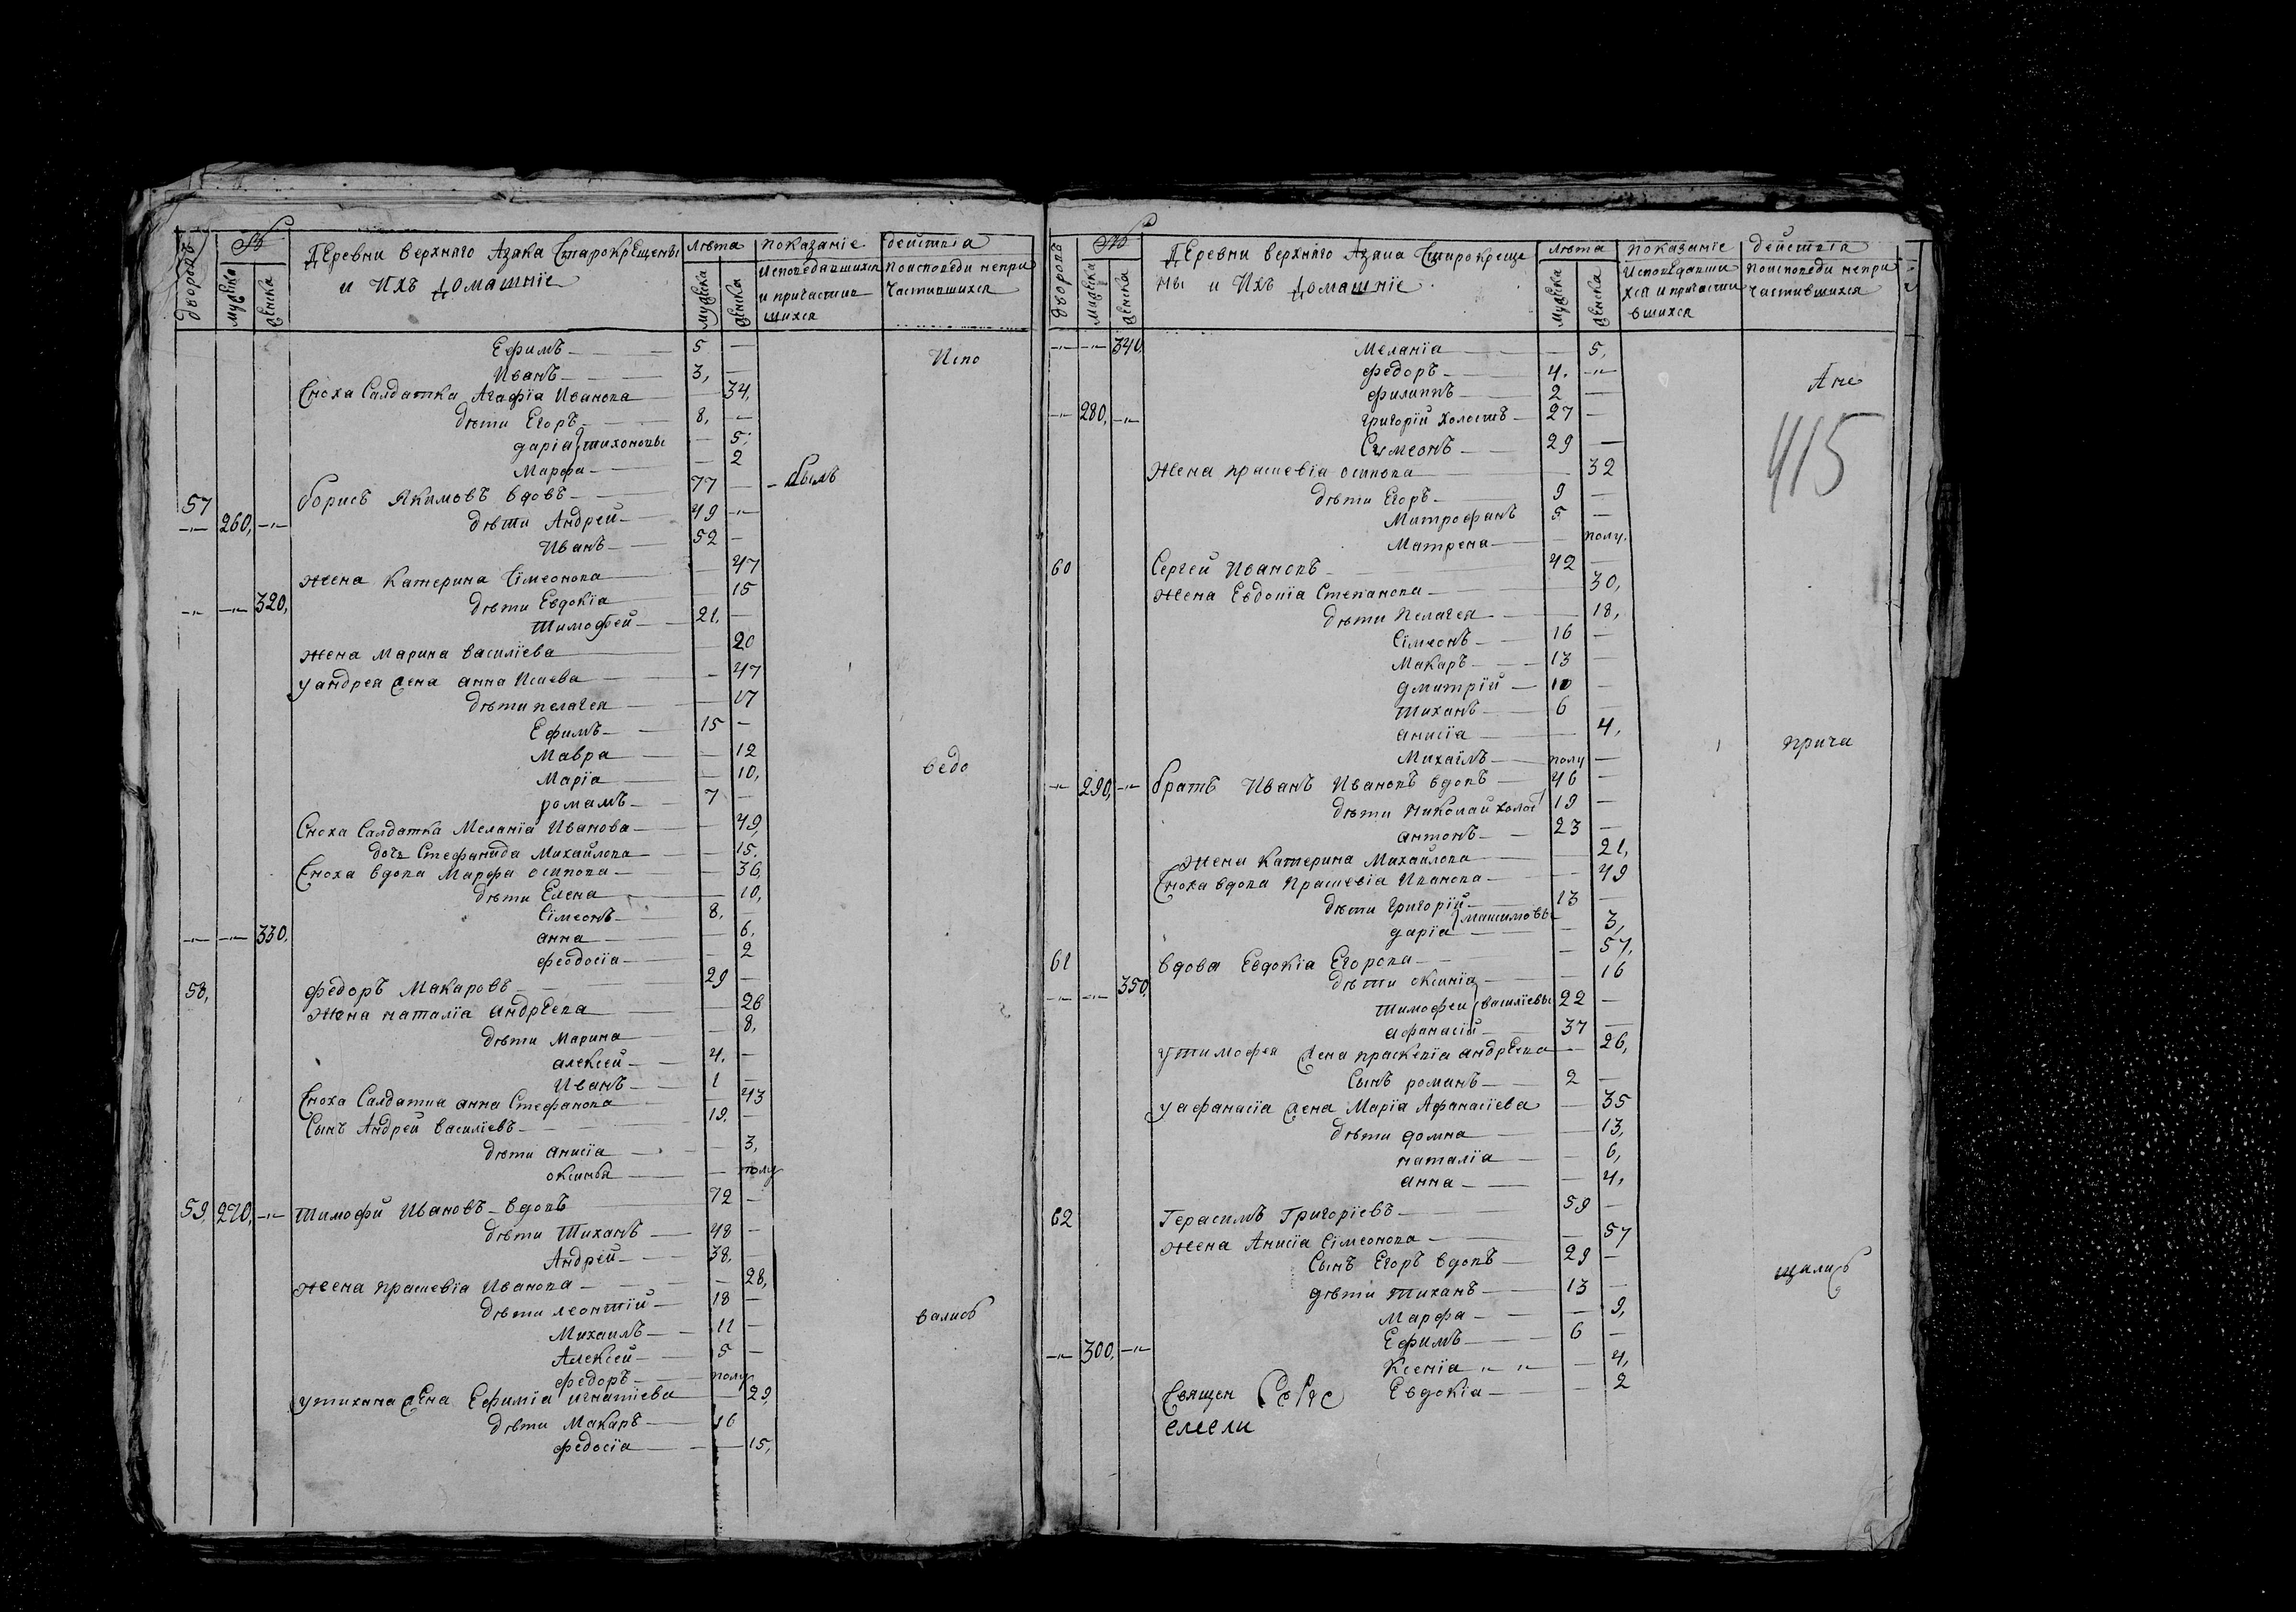 Дворовъ № Деревни верхняго Азяка Старокрещены Лѣта показаніе действія
мужска женска и Ихъ Домашніе мужска женска Исповедавшихся и причастив шихся Поисповеди непри Частившихся
Ефимъ 5 —
Испо
Иванъ 3, —
Сноха Салдатка Агафіа Иванова — 34,
дѣти Егоръ 8, —
даріа тихоновы — 5,
Марфа — 2
57 борисъ Якимовъ вдовъ 77 — былъ
260, дѣти Андрей 49 —
Иванъ 52 —
жена Катерина Сімеонова — 47
320, дѣти Евдокіа — 15
Тимофей 21, —
жена Марина василіева — 20
у андрея жена анна Исаева — 47
дѣти пелагея — 17
Ефимъ 15 —
Мавра — 12
Маріа — 10,
ведо
романъ 7 —
Сноха Салдатка Меланіа Иванова — 49,
дочь Стефанида Михайлова — 15,
Сноха вдова Марфа осипова — 36,
дѣти Елена — 10,
Сімеонъ 8, —
330, анна — 6,
феодосіа — 2
58, федоръ Макаровъ 29 —
жена наталіа андрѣева — 26
дѣти Марина — 8,
алексей 4, —
Иванъ 1 —
Сноха Салдатка анна Стефанова — 43
Сынъ Андрей василіевъ 19, —
дѣти анисіа — 3,
оксинья — полу
59, 270, Тимофй Ивановъ вдовъ 72 —
дѣти Тиханъ 48 —
Андрей 38, —
жена прасковіа Иванова — 28,
дѣти леонтій 18 —
Михаилъ 11 —
вались
Алексей 5 —
федоръ полу
у тихана жена Ефиміа игнатіева — 29,
дѣти Макаръ 16
федосіа — 15,
Дворовъ № Деревни верхняго Азяка Старокреще Лѣта показаніе действія
мужска женска ны и Ихъ Домашніе мужска женска Исповѣдавши хся и причасти вшихся поисповеди непри Частившихся
340, Меланіа — 5,
федоръ 4, —
Ане
филиппъ 2 —
280, григорій холостъ 27 —
415
Сѵмеонъ 29 —
жена прасковіа осипова — 32
дѣти Егоръ 9 —
Митрофанъ 5 —
Матрена — полу,
60 Сергей Ивановъ 42 —
жена Евдокіа Степанова — 30,
дѣти Пелагея — 18,
Сімеонъ 16 —
Макаръ 13 —
дмитрій 10 —
Тиханъ 6 —
анисіа — 4,
прича
Михаилъ полу —
290, братъ Иванъ Ивановъ вдовъ 46 —
дѣти Николай холос 19 —
антонъ 23 —
жена Катерина Михайлова — 21,
Сноха вдова Прасковіа Иванова — 49
дѣти Григорій 13 —
даріа Максимовы — 3,
61 вдова Евдокіа Егорова — 57,
350, дѣти оксиніа — 16
Тимофей василіевы 22 —
афанасій 37 —
у тимофея жена прасковіа андрѣева — 26,
Сынъ романъ 2 —
у афанасіа жена Маріа Афанасіева — 35
дѣти домна — 13,
наталіа — 6,
анна — 4,
62 Герасимъ Григоріевъ 59 —
жена Анисіа Сімеонова — 57
Сынъ Егоръ вдовъ 29 —
щались
дѣти тиханъ 13 —
Марфа — 9,
Ефимъ 6 —
300, Ксеніа — 4,
Священ Евдокіа — 2